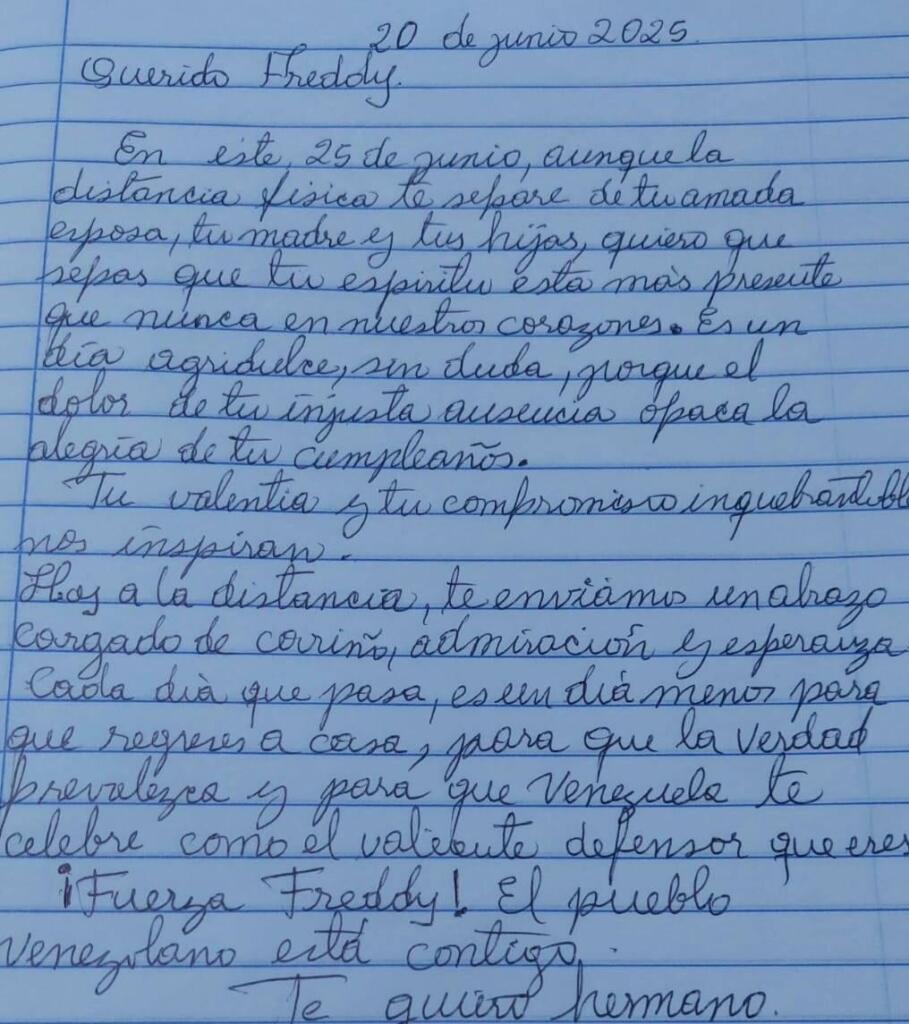 20 de junio 2025.
Querido Freddy.
En este, 25 de junio, aunque la
distancia física te separe de tu amada
esposa, tu madre y tus hijas, quiero que
sepas que tu espiritu esta más presente
que nunca en nuestros corazones. Es un
día agridulce, sin duda, porque el
dolor de tu injusta ausencia opaca la
alegría de tu cumpleaños.
Tu valentia y tu compromiso inquebrantable
nos inspiran.
Hoy a la distancia, te enviámos un abrazo
cargado de cariño, admiración y esperanza
Cada día que pasa, es un día menos para
que regreses a casa, para que la verdad
prevalezca y para que Venezuela te
celebre como el valiente defensor que eres
¡Fuerza Freddy! El pueblo
venezolano está contigo.
Te quiero hermano.